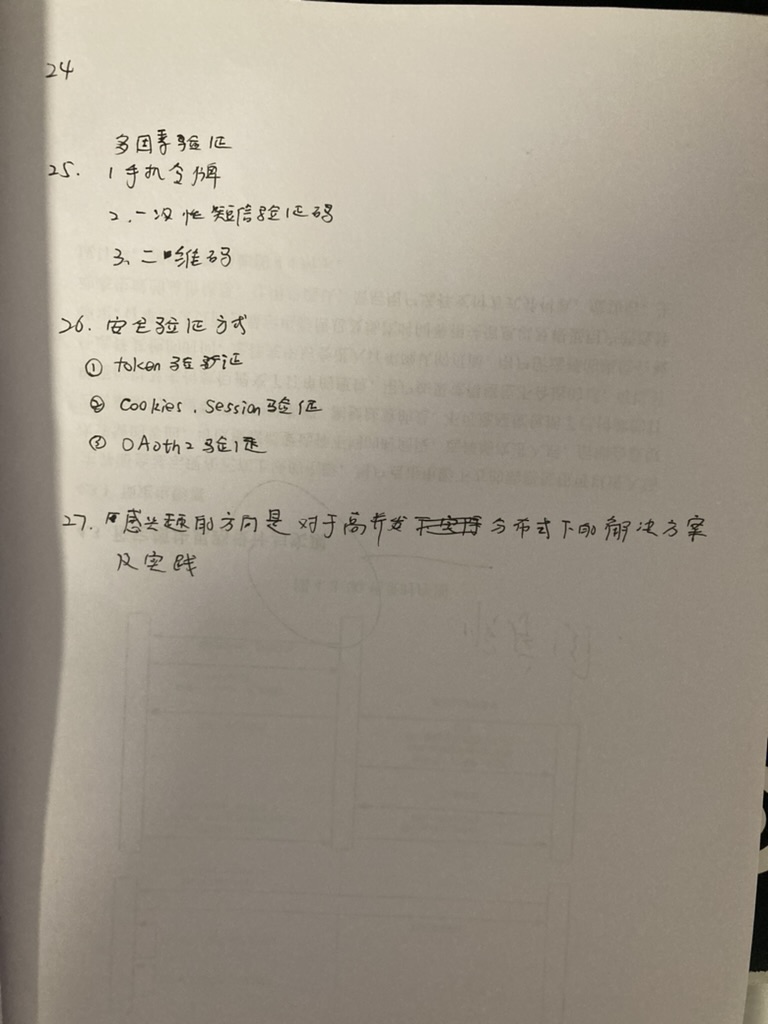 24
多因素验证
25. 1 手机令牌
2. 一次性短信验证码
3、二维码
26. 安全验证方式
① token 验证
② Cookies、Session 验证
③ OAoth2 验证
27. 感兴趣的方向是对于高并发 分布式下的解决方案
及实践